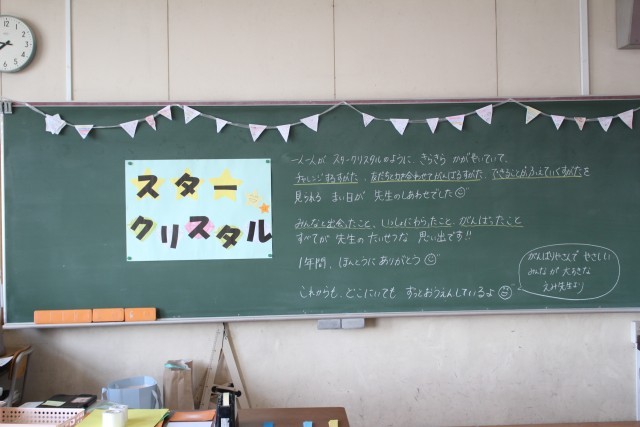 スター
クリスタル
一人一人が スタークリスタルのように、きらきら かがやいていて、
チャレンジするすがた、友だちと力を合わせてがんばるすがた、できることがふえていくすがたを
見られる まい日が 先生のしあわせでした
みんなと出会ったこと、いっしょにわらったこと、がんばったこと
すべてが 先生の たいせつな 思い出です!!
1年間、ほんとうに ありがとう
これからも、どこにいても ずっとおうえんしているよ
がんばりやさんで やさしい
みんなが 大すきな
えみ先生より